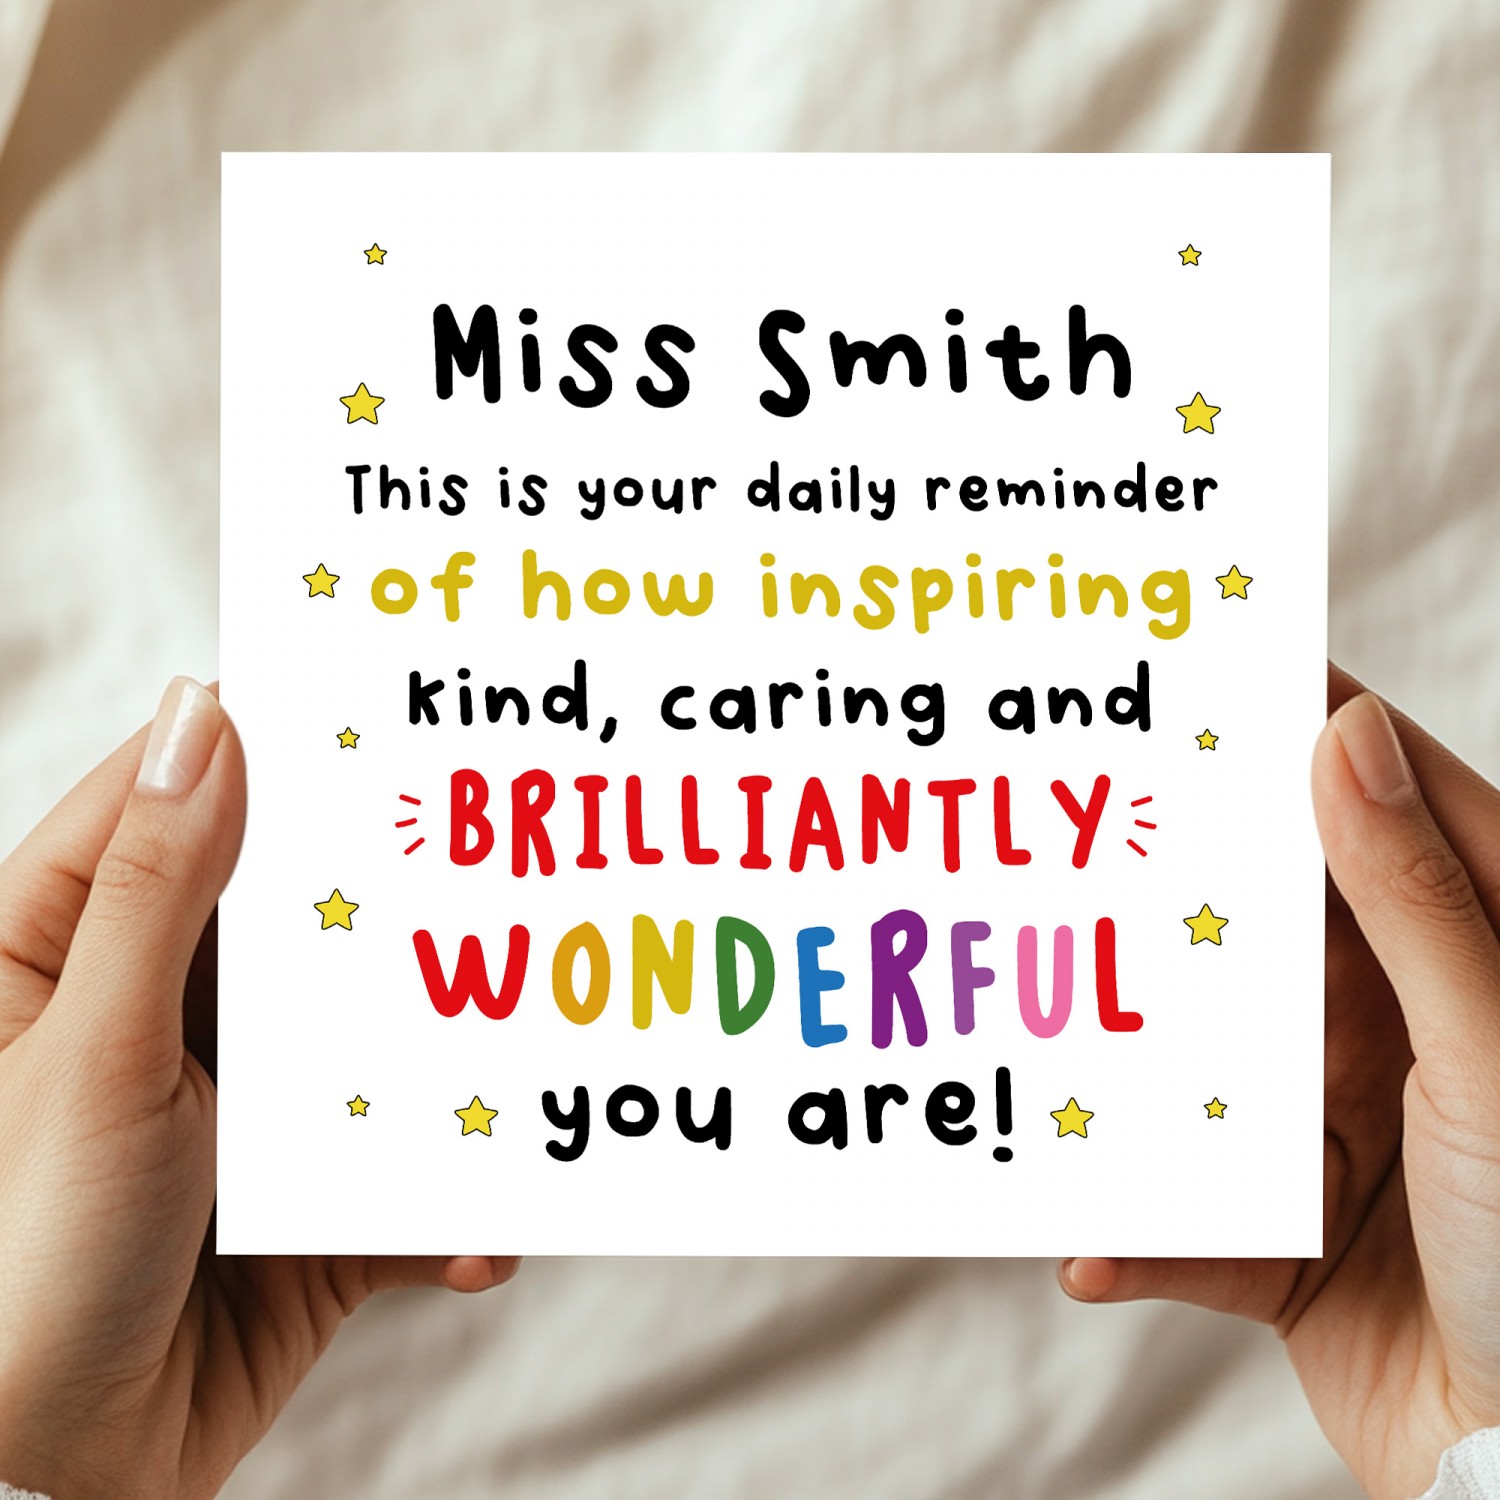 Miss Smith
This is your daily reminder
of how inspiring
kind, caring and
BRILLIANTLY
WONDERFUL
you are!